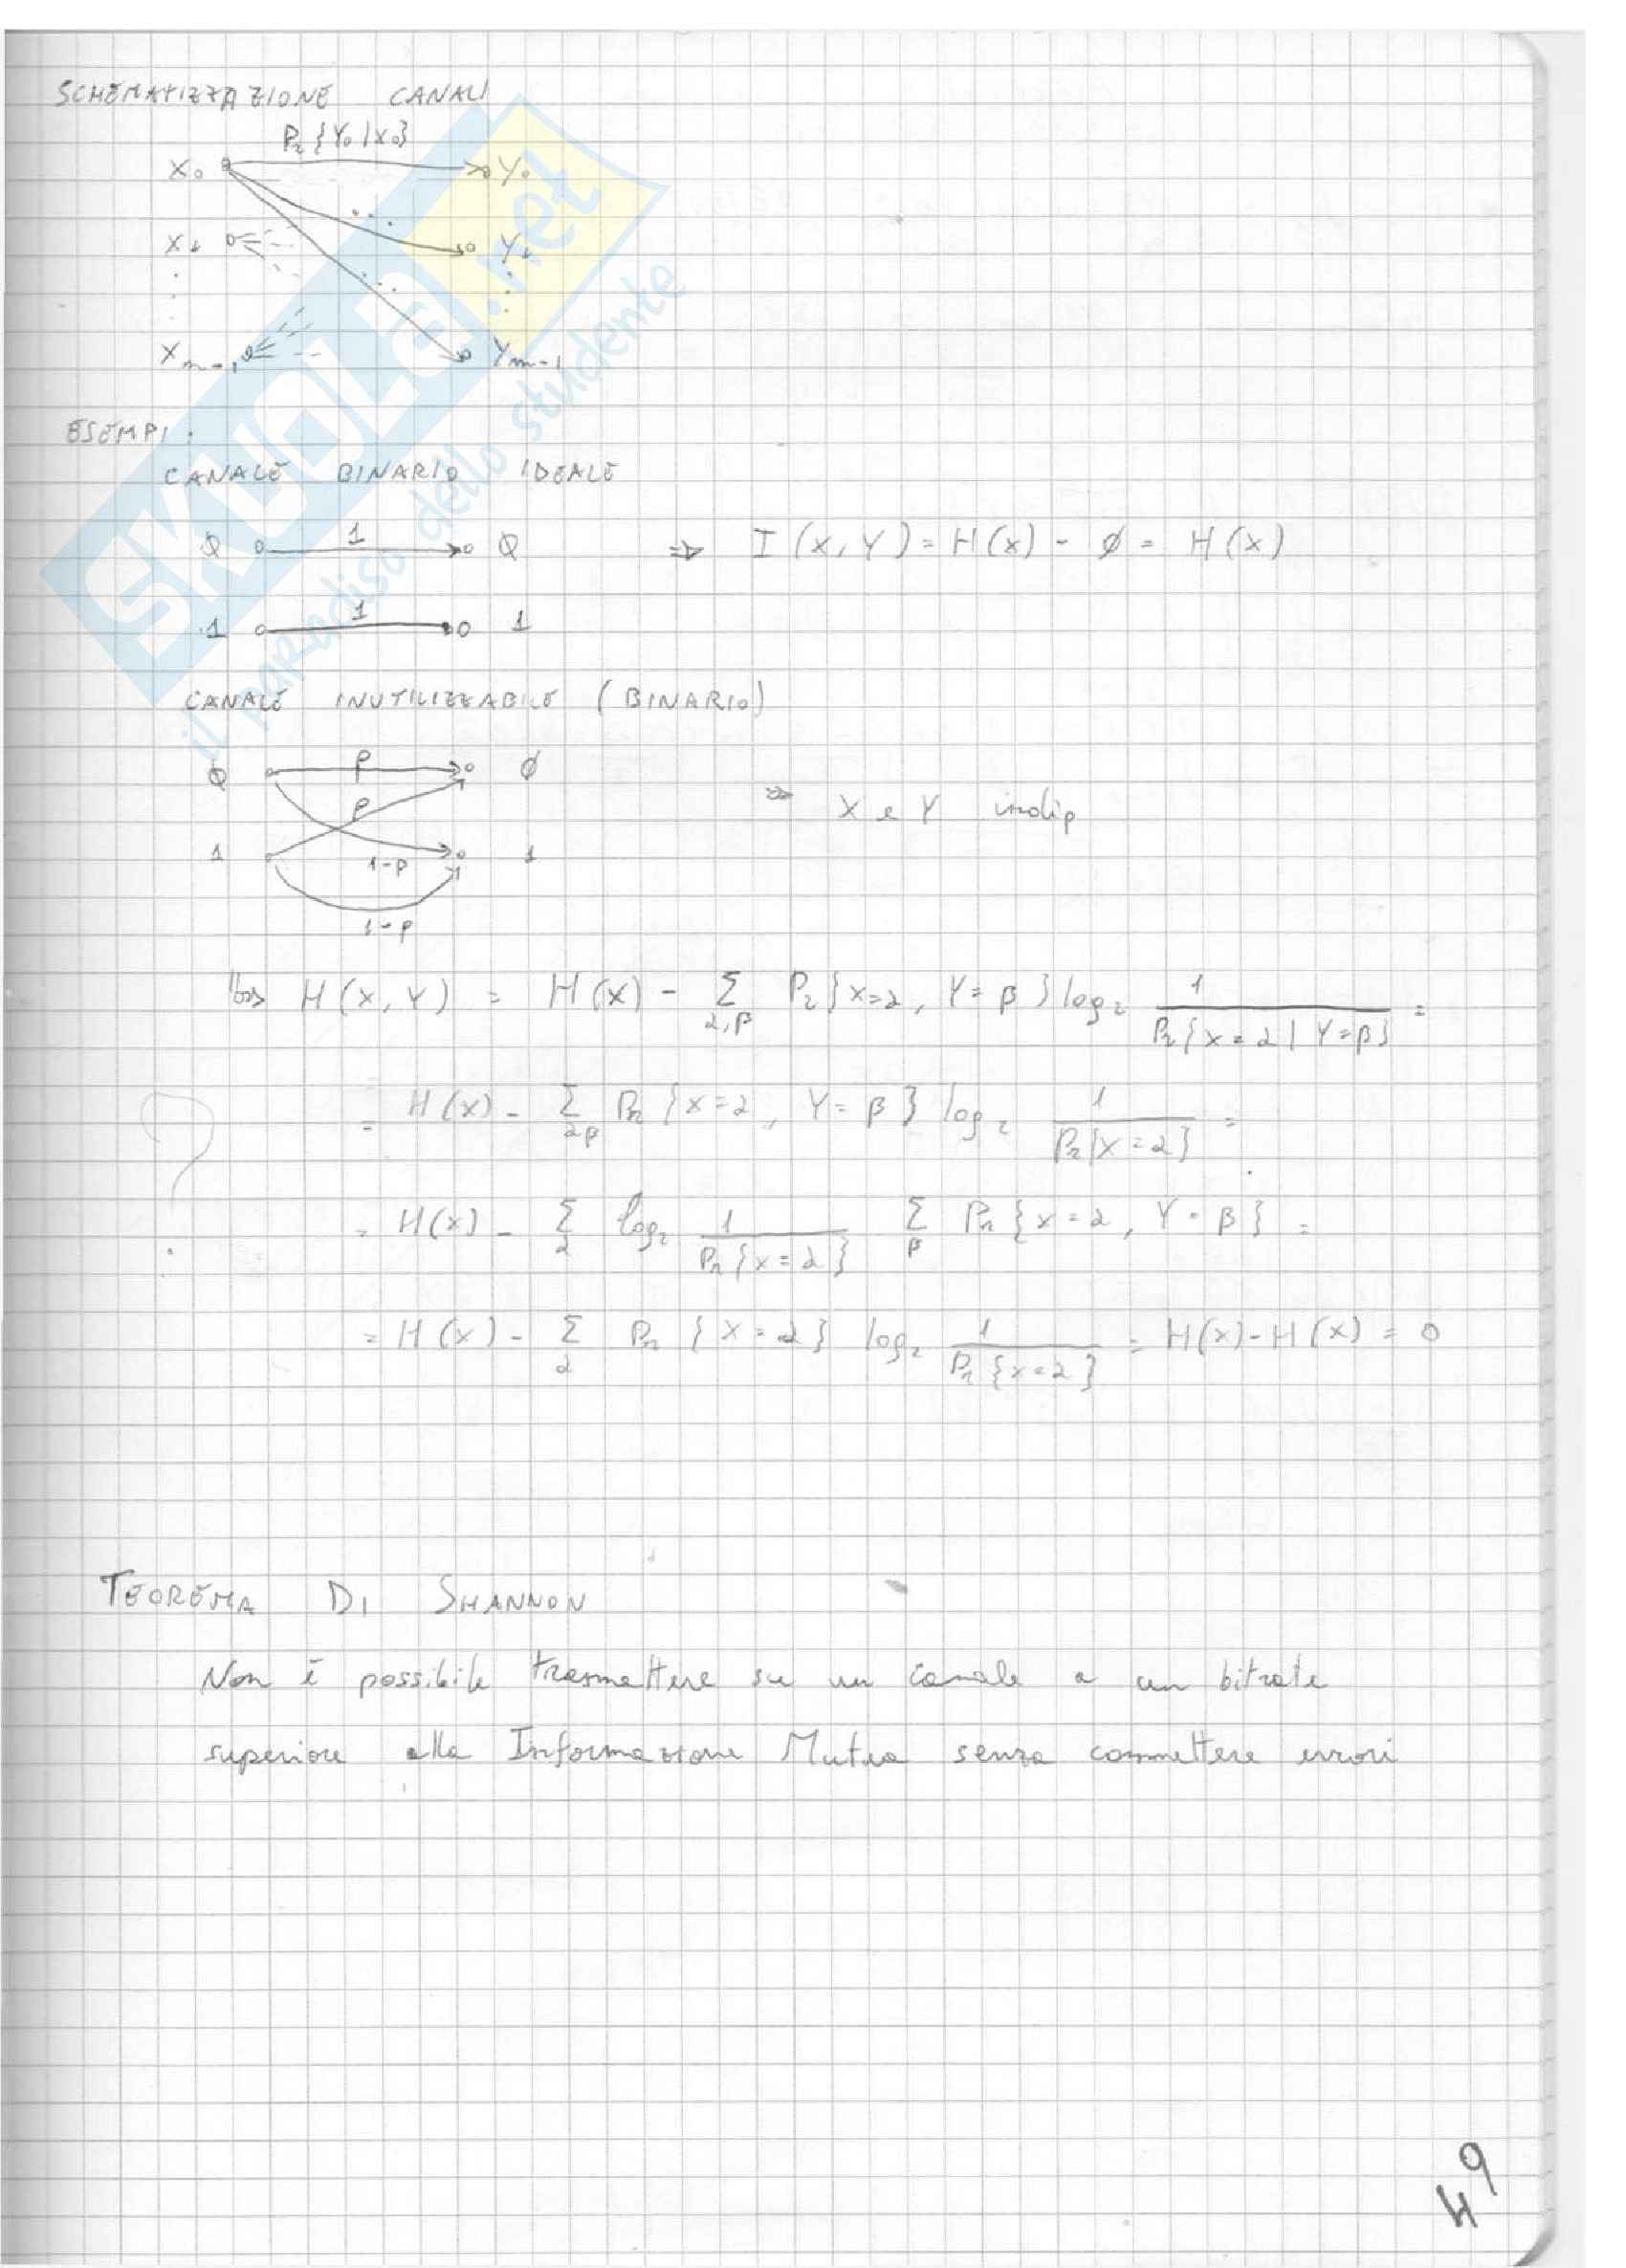 SCHEMATIZZAZIONE CANALI
Pr{Y₀|X₀}
X₀ Y₀
X₁ Y₁
Xₘ₋₁ Yₘ₋₁
ESEMPI:
CANALE BINARIO IDEALE
0 1 0 ⇒ I(X,Y) = H(X) - ∅ = H(X)
1 1 1
CANALE INUTILIZZABILE (BINARIO)
0 p ∅
p ⇒ X e Y indip
1 1-p 1
1-p
H(X,Y) = H(X) - Σ_{α,β} Pr{X=α, Y=β} log₂ 1/Pr{X=α|Y=β} =
= H(X) - Σ_{αβ} Pr{X=α, Y=β} log₂ 1/Pr{X=α} =
?
= H(X) - Σ_α log₂ 1/Pr{X=α} Σ_β Pr{X=α, Y=β} =
= H(X) - Σ_α Pr{X=α} log₂ 1/Pr{X=α} = H(X)-H(X) = 0
TEOREMA DI SHANNON
Non è possibile trasmettere su un canale a un bitrate
superiore alla Informazione Mutua senza commettere errori
49
SKUOLA.net
il paradiso dello studente